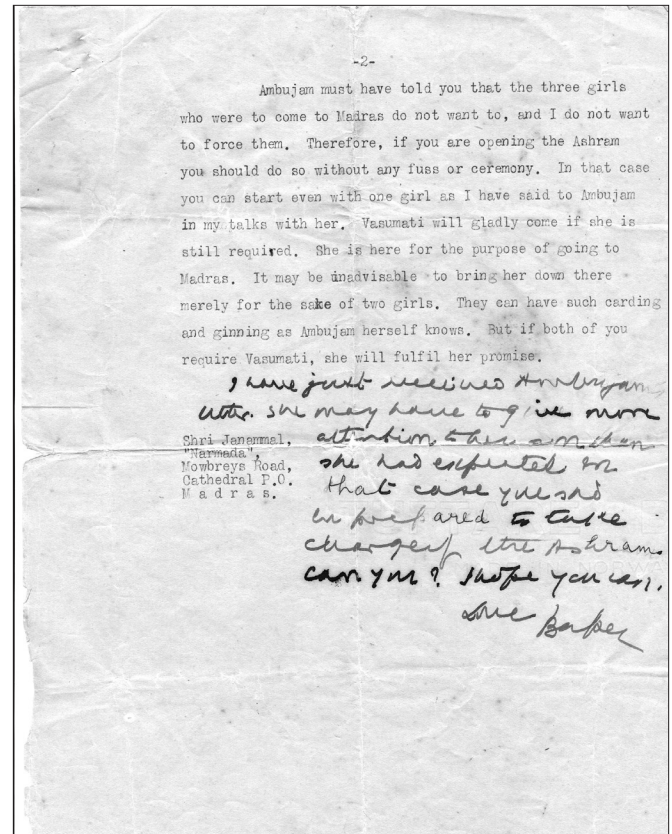 -2-
Ambujam must have told you that the three girls
who were to come to Madras do not want to, and I do not want
to force them. Therefore, if you are opening the Ashram
you should do so without any fuss or ceremony. In that case
you can start even with one girl as I have said to Ambujam
in my talks with her. Vasumati will gladly come if she is
still required. She is here for the purpose of going to
Madras. It may be inadvisable to bring her down there
merely for the sake of two girls. They can have such carding
and ginning as Ambujam herself knows. But if both of you
require Vasumati, she will fulfil her promise.
I have just received Ambujam
letter. she may have to give more
attention to her son than
she had expected. In
that case you said
be prepared to take
charge of the Ashram.
can you? I hope you can.
Love Bapu
Shri Janammal,
"Narmada",
Mowbreys Road,
Cathedral P.O.
M a d r a s.